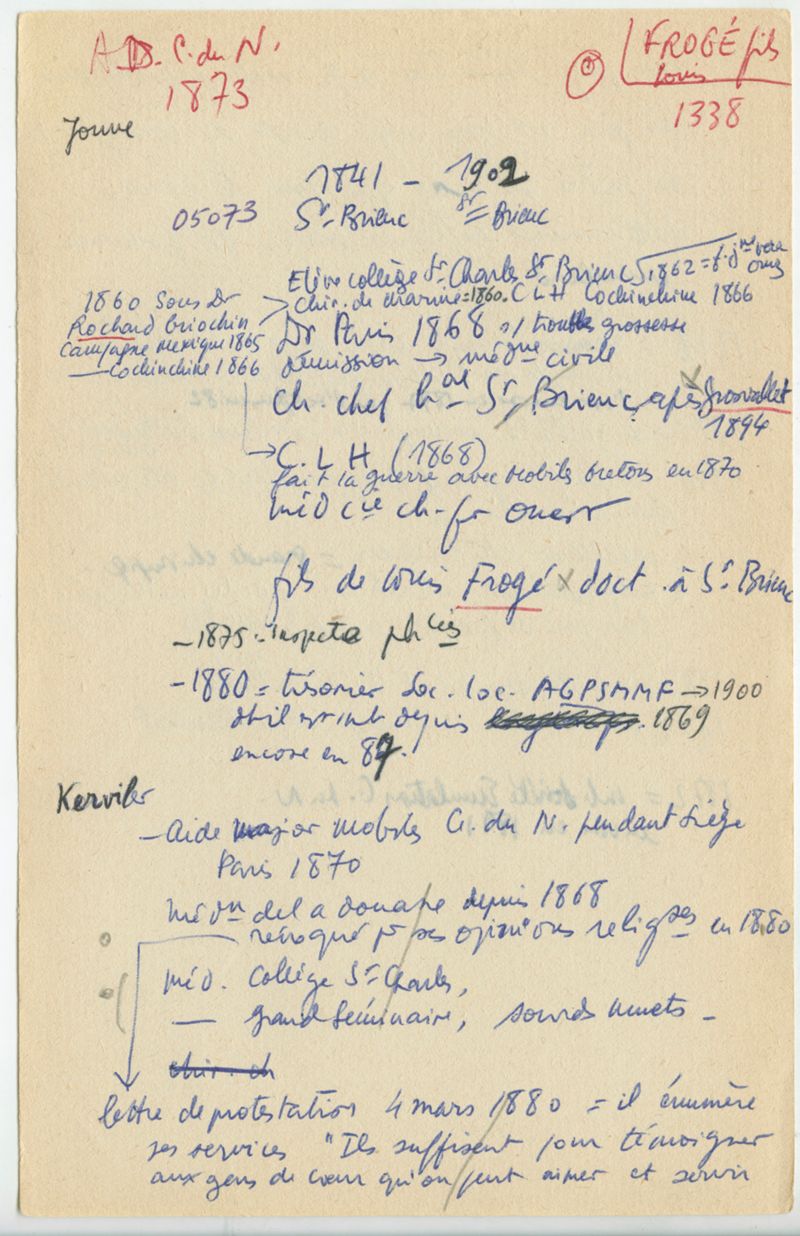 AD. C. du N.
1873
FROGÉ fils
Louis
1338
Jouve
1841 - 1902
05073 St-Brieuc St-Brieuc
Elève collège St Charles St Brieuc 1862 =
chir. de marine = 1860. C L H Cochinchine 1866
1860 Sous Dr
Rochard briochin
Campagne mexique 1865
— Cochinchine 1866
Dr Paris 1868 s/ troubles grossesse
démission → médne civile
Ch. chef hal St Brieuc, après
1894
→ C. L H (1868)
fait la guerre avec mobiles bretons en 1870
méd cie ch-fr ouest
fils de Louis Frogé x doct. à St Brieuc
- 1875. inspecta phcies
- 1880 = trésorier Soc. loc. AGPSMMF → 1900
dt il est mb depuis 1869
encore en 87.
Kerviler
- Aide major mobiles C. du N. pendant siège
Paris 1870
médn de la douane depuis 1868
révoqué pr ses opinions religses en 1880
méd. Collège St Charles,
— Grand Séminaire, sourds muets -
chir. ch
lettre de protestation 4 mars 1880 = il énumère
ses services "Ils suffisent pour témoigner
aux gens de cœur qu'on peut aimer et servir